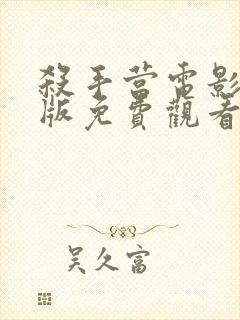 殺手營電影
版免費觀看
吴久富